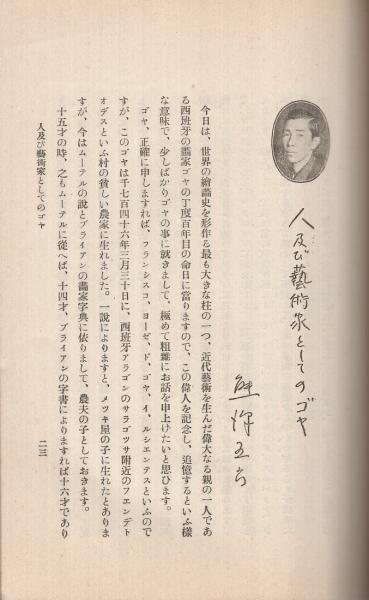 人及び藝術家としてのゴヤ
今日は、世界の繪畫史を形作る最も大きな柱の一つ、近代藝術を生んだ偉大なる親の一人であ
る西班牙の畵家ゴヤの丁度百年目の命日に當りますので、この偉人を記念し、追憶するといふ樣
な意味で、少しばかりゴヤの事に就きまして、極めて粗雜にお話を申上げたいと思ひます。
ゴヤ、正確に申しますれば、フランシスコ、ヨーゼ、ド、ゴヤ、イ、ルシエンテスといふので
すが、このゴヤは千七百四十六年三月三十日に、西班牙アラゴンのサラゴツサ附近のフエンデト
オデスといふ村の貧しい農家に生れました。一說によりますと、メツキ屋の子に生れたとありま
すが、今はムーテルの說とブライアンの畵家字典に依りまして、農夫の子としておきます。
十五才の時、之もムーテルに從へば、十四才、ブライアンの字書によりますれば十六才であり
人及び藝術家としてのゴヤ
二三